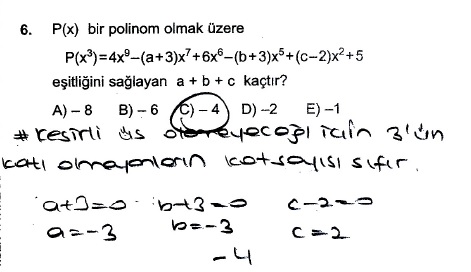 6. P(x) bir polinom olmak üzere
P(x³)=4x⁹−(a+3)x⁷+6x⁶−(b+3)x⁵+(c−2)x²+5
eşitliğini sağlayan a + b + c kaçtır?
A) – 8 B) – 6 C) – 4 D) –2 E) –1
# kesirli üs olamayacağı için 3'ün
katı olmayanların katsayısı sıfır.
a+3=0 b+3=0 c-2=0
a=-3 b=-3 c=2
-4